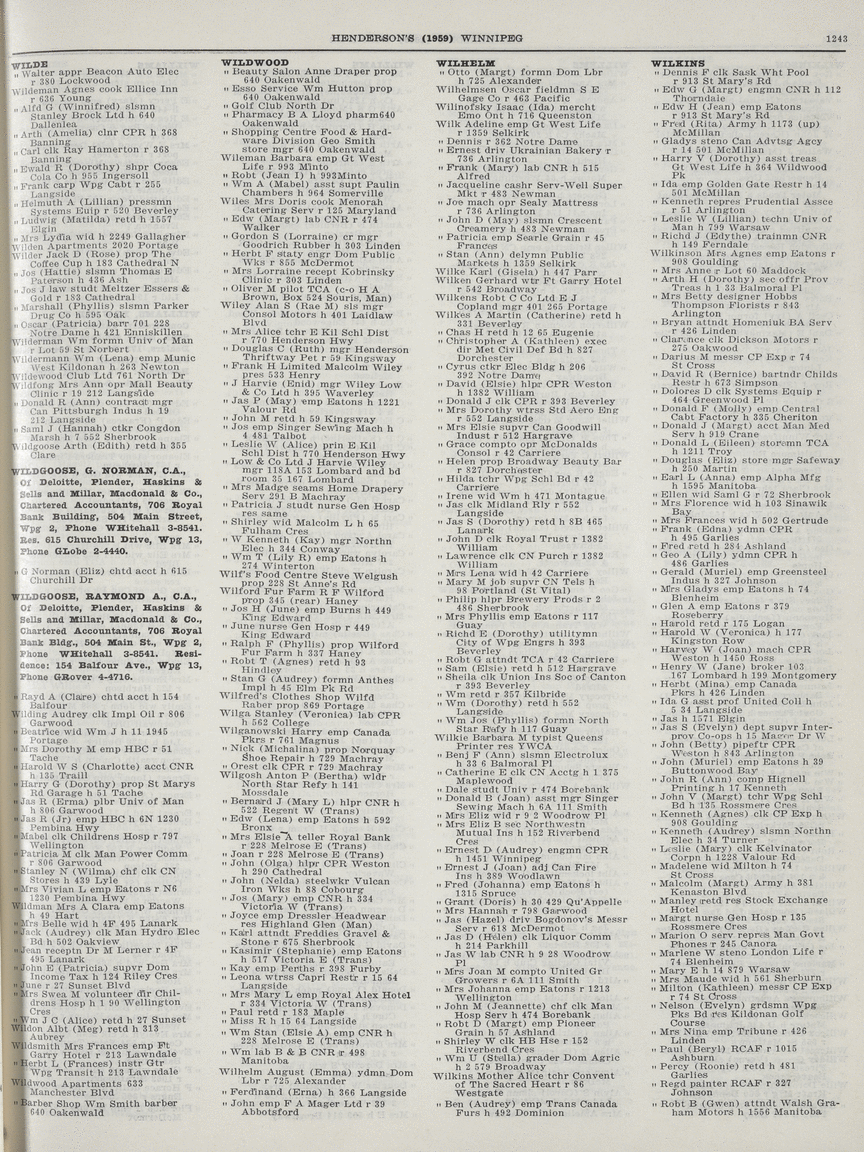 HENDERSON'S (1959) WINNIPEG
1243
WILDE
" Walter appr Beacon Auto Elec
r 380 Lockwood
Wildeman Agnes cook Ellice Inn
r 636 Young
" Alfd G (Winnifred) slsmn
Stanley Brock Ltd h 640
Dallenlea
" Arth (Amelia) clnr CPR h 368
Banning
" Carl clk Ray Hamerton r 368
Banning
" Ewald R (Dorothy) shpr Coca
Cola Co h 955 Ingersoll
" Frank carp Wpg Cabt r 255
Langside
" Helmuth A (Lillian) pressmn
Systems Euip r 520 Beverley
" Ludwig (Matilda) retd h 1557
Elgin
" Mrs Lydia wid h 2249 Gallagher
Wilden Apartments 2020 Portage
Wilder Jack D (Rose) prop The
Coffee Cup h 183 Cathedral N
" Jos (Hattie) slsmn Thomas E
Paterson h 436 Ash
" Jos J law studt Meltzer Essers &
Gold r 183 Cathedral
" Marshall (Phyllis) slsmn Parker
Drug Co h 595 Oak
" Oscar (Patricia) barr 701 228
Notre Dame h 421 Enniskillen
Wilderman Wm formn Univ of Man
r Lot 59 St Norbert
Wildermann Wm (Lena) emp Munic
West Kildonan h 263 Newton
Wildewood Club Ltd 761 North Dr
Wildfong Mrs Ann opr Mall Beauty
Clinic r 19 212 Langside
" Donald R (Ann) contract mgr
Can Pittsburgh Indus h 19
212 Langside
" Saml J (Hannah) ctkr Congdon
Marsh h 7 552 Sherbrook
Wildgoose Arth (Edith) retd h 355
Clare
WILDGOOSE, G. NORMAN, C.A.,
Of Deloitte, Plender, Haskins &
Sells and Millar, Macdonald & Co.,
Chartered Accountants, 706 Royal
Bank Building, 504 Main Street,
Wpg 2, Phone WHitehall 3-8541.
Res. 615 Churchill Drive, Wpg 13,
Phone GLobe 2-4440.
" G Norman (Eliz) chtd acct h 615
Churchill Dr
WILDGOOSE, RAYMOND A., C.A.,
Of Deloitte, Plender, Haskins &
Sells and Millar, Macdonald & Co.,
Chartered Accountants, 706 Royal
Bank Bldg., 504 Main St., Wpg 2,
Phone WHitehall 3-8541. Resi-
dence: 154 Balfour Ave., Wpg 13,
Phone GRover 4-4716.
" Rayd A (Clare) chtd acct h 154
Balfour
Wilding Audrey clk Impl Oil r 806
Garwood
" Beatrice wid Wm J h 11 1945
Portage
" Mrs Dorothy M emp HBC r 51
Tache
" Harold W S (Charlotte) acct CNR
h 135 Traill
" Harry G (Dorothy) prop St Marys
Rd Garage h 51 Tache
" Jas R (Erma) plbr Univ of Man
h 806 Garwood
" Jas R (Jr) emp HBC h 6N 1230
Pembina Hwy
" Mabel clk Childrens Hosp r 797
Wellington
" Patricia M clk Man Power Comm
r 806 Garwood
" Stanley N (Wilma) chf clk CN
Stores h 439 Lyle
" Mrs Vivian L emp Eatons r N6
1230 Pembina Hwy
Wildman Mrs A Clara emp Eatons
h 49 Hart
" Mrs Belle wid h 4F 495 Lanark
" Jack (Audrey) clk Man Hydro Elec
Bd h 502 Oakview
" Jean receptn Dr M Lerner r 4F
495 Lanark
" John E (Patricia) suprvr Dom
Income Tax h 124 Riley Cres
" June r 27 Sunset Blvd
" Mrs Swea M volunteer dir Chil-
drens Hosp h 1 90 Wellington
Cres
" Wm J C (Alice) retd h 27 Sunset
Wildon Albt (Meg) retd h 313
Aubrey
Wildsmith Mrs Frances emp Ft
Garry Hotel r 213 Lawndale
" Herbt L (Frances) instr Gtr
Wpg Transit h 213 Lawndale
Wildwood Apartments 633
Manchester Blvd
" Barber Shop Wm Smith barber
640 Oakenwald
WILDWOOD
" Beauty Salon Anne Draper prop
640 Oakenwald
" Esso Service Wm Hutton prop
640 Oakenwald
" Golf Club North Dr
" Pharmacy B A Lloyd pharm640
Oakenwald
" Shopping Centre Food & Hard-
ware Division Geo Smith
store mgr 640 Oakenwald
Wileman Barbara emp Gt West
Life r 993 Minto
" Robt (Jean I) h 993Minto
" Wm A (Mabel) asst supt Paulin
Chambers h 964 Somerville
Wiles Mrs Doris cook Menorah
Catering Serv r 125 Maryland
" Edw (Margt) lab CNR r 474
Walker
" Gordon S (Lorraine) cr mgr
Goodrich Rubber h 303 Linden
" Herbt F staty engr Dom Public
Wks r 855 McDermot
" Mrs Lorraine recept Kobrinsky
Clinic r 303 Linden
" Oliver M pilot TCA (c-o H A
Brown, Box 524 Souris, Man)
Wiley Alan S (Rae M) sls mgr
Consol Motors h 401 Laidlaw
Blvd
" Mrs Alice tchr E Kil Schl Dist
r 770 Henderson Hwy
" Douglas C (Ruth) mgr Henderson
Thriftway Pet r 59 Kingsway
" Frank H Limited Malcolm Wiley
pres 533 Henry
" J Harvie (Enid) mgr Wiley Low
& Co Ltd h 395 Waverley
" Jas P (May) emp Eatons h 1221
Valour Rd
" John M retd h 59 Kingsway
" Jos emp Singer Sewing Mach h
4 481 Talbot
" Leslie W (Alice) prin E Kil
Schl Dist h 770 Henderson Hwy
" Low & Co Ltd J Harvie Wiley
mgr 118A 153 Lombard and bd
room 35 167 Lombard
" Mrs Madge seams Home Drapery
Serv 291 B Machray
" Patricia J studt nurse Gen Hosp
res same
" Shirley wid Malcolm L h 65
Fulham Cres
" W Kenneth (Kay) mgr Northn
Elec h 344 Conway
" Wm T (Lily R) emp Eatons h
274 Winterton
Wilf's Food Centre Steve Welgush
prop 228 St Anne's Rd
Wilford Fur Farm R F Wilford
prop 345 (rear) Haney
" Jos H (June) emp Burns h 449
King Edward
" June nurse Gen Hosp r 449
King Edward
" Ralph F (Phyllis) prop Wilford
Fur Farm h 337 Haney
" Robt T (Agnes) retd h 93
Hindley
" Stan G (Audrey) formn Anthes
Impl h 45 Elm Pk Rd
Wilfred's Clothes Shop Wilfd
Raber prop 869 Portage
Wilga Stanley (Veronica) lab CPR
h 562 College
Wilganowski Harry emp Canada
Pkrs r 761 Magnus
" Nick (Michalina) prop Norquay
Shoe Repair h 729 Machray
" Orest clk CPR r 729 Machray
Wilgosh Anton P (Bertha) wldr
North Star Refy h 141
Mossdale
" Bernard J (Mary L) hlpr CNR h
522 Regent W (Trans)
" Edw (Lena) emp Eatons h 592
Bronx
" Mrs Elsie A teller Royal Bank
r 228 Melrose E (Trans)
" Joan r 228 Melrose E (Trans)
" John (Olga) hlpr CPR Weston
h 290 Cathedral
" John (Nelda) steelwkr Vulcan
Iron Wks h 88 Cobourg
" Jos (Mary) emp CNR h 334
Victoria W (Trans)
" Joyce emp Dressler Headwear
res Highland Glen (Man)
" Karl attndt Freddies Gravel &
Stone r 675 Sherbrook
" Kasimir (Stephanie) emp Eatons
h 517 Victoria E (Trans)
" Kay emp Penths r 398 Furby
" Leona wtrss Capri Restr r 15 64
Langside
" Mrs Mary L emp Royal Alex Hotel
r 334 Victoria W (Trans)
" Paul retd r 183 Maple
" Miss R h 15 64 Langside
" Wm Stan (Elsie A) emp CNR h
228 Melrose E (Trans)
" Wm lab B & B CNR r 498
Manitoba
Wilhelm August (Emma) ydmn Dom
Lbr r 725 Alexander
" Ferdinand (Erna) h 366 Langside
" John emp F A Mager Ltd r 39
Abbotsford
WILHELM
" Otto (Margt) formn Dom Lbr
h 725 Alexander
Wilhelmsen Oscar fieldmn S E
Gage Co r 463 Pacific
Wilinofsky Isaac (Ida) mercht
Emo Ont h 716 Queenston
Wilk Adeline emp Gt West Life
r 1359 Selkirk
" Dennis r 362 Notre Dame
" Ernest driv Ukrainian Bakery r
736 Arlington
" Frank (Mary) lab CNR h 515
Alfred
" Jacqueline cashr Serv-Well Super
Mkt r 483 Newman
" Joe mach opr Sealy Mattress
r 736 Arlington
" John D (May) slsmn Crescent
Creamery h 483 Newman
" Patricia emp Searle Grain r 45
Frances
" Stan (Ann) delymn Public
Markets h 1359 Selkirk
Wilke Karl (Gisela) h 447 Parr
Wilken Gerhard wtr Ft Garry Hotel
r 542 Broadway
Wilkens Robt C Co Ltd E J
Copland mgr 401 265 Portage
Wilkes A Martin (Catherine) retd h
331 Beverley
" Chas H retd h 12 65 Eugenie
" Christopher A (Kathleen) exec
dir Met Civil Def Bd h 827
Dorchester
" Cyrus ctkr Elec Bldg h 206
392 Notre Dame
" David (Elsie) hlpr CPR Weston
h 1382 William
" Donald J clk CPR r 393 Beverley
" Mrs Dorothy wtrss Std Aero Eng
r 552 Langside
" Mrs Elsie supvr Can Goodwill
Indust r 512 Hargrave
" Grace compto opr McDonalds
Consol r 42 Carriere
" Helen prop Broadway Beauty Bar
r 827 Dorchester
" Hilda tchr Wpg Schl Bd r 42
Carriere
" Irene wid Wm h 471 Montague
" Jas clk Midland Rly r 552
Langside
" Jas S (Dorothy) retd h 8B 465
Lanark
" John D clk Royal Trust r 1382
William
" Lawrence clk CN Purch r 1382
William
" Mrs Lena wid h 42 Carriere
" Mary M job supvr CN Tels h
98 Portland (St Vital)
" Philip hlpr Brewery Prods r 2
486 Sherbrook
" Mrs Phyllis emp Eatons r 117
Guay
" Richd E (Dorothy) utilitymn
City of Wpg Engrs h 393
Beverley
" Robt G attndt TCA r 42 Carriere
" Sam (Elsie) retd h 512 Hargrave
" Sheila clk Union Ins Soc of Canton
r 393 Beverley
" Wm retd r 357 Kilbride
" Wm (Dorothy) retd h 552
Langside
" Wm Jos (Phyllis) formn North
Star Rafy h 117 Guay
Wilkie Barbara M typist Queens
Printer res YWCA
" Benj F (Ann) slsmn Electrolux
h 33 6 Balmoral Pl
" Catherine E clk CN Acctg h 1 375
Maplewood
" Dale studt Univ r 474 Borebank
" Donald B (Joan) asst mgr Singer
Sewing Mach h 6A 111 Smith
" Mrs Eliz wid r 9 2 Woodrow Pl
" Mrs Eliz B sec Northwestn
Mutual Ins h 152 Riverbend
Cres
" Ernest D (Audrey) engmn CPR
h 1451 Winnipeg
" Ernest J (Joan) adj Can Fire
Ins h 389 Woodlawn
" Fred (Johanna) emp Eatons h
1315 Spruce
" Grant (Doris) h 30 429 Qu'Appelle
" Mrs Hannah r 798 Garwood
" Jas (Hazel) driv Bogdonov's Messr
Serv r 618 McDermot
" Jas D (Helen) clk Liquor Comm
h 214 Parkhill
" Jas W lab CNR h 9 28 Woodrow
Pl
" Mrs Joan M compto United Gr
Growers r 6A 111 Smith
" Mrs Johanna emp Eatons r 1213
Wellington
" John M (Jeannette) chf clk Man
Hosp Serv h 474 Borebank
" Robt D (Margt) emp Pioneer
Grain h 57 Ashland
" Shirley W clk HB Hse r 152
Riverbend Cres
" Wm U (Stella) grader Dom Agric
h 2 579 Broadway
Wilkins Mother Alice tchr Convent
of The Sacred Heart r 86
Westgate
" Ben (Audrey) emp Trans Canada
Furs h 492 Dominion
WILKINS
" Dennis F clk Sask Wht Pool
r 913 St Mary's Rd
" Edw G (Margt) engmn CNR h 112
Thorndale
" Edw H (Jean) emp Eatons
r 913 St Mary's Rd
" Fred (Rita) Army h 1173 (up)
McMillan
" Gladys steno Can Advtsg Agcy
r 14 501 McMillan
" Harry V (Dorothy) asst treas
Gt West Life h 364 Wildwood
Pk
" Ida emp Golden Gate Restr h 14
501 McMillan
" Kenneth repres Prudential Assce
r 51 Arlington
" Leslie W (Lillian) techn Univ of
Man h 799 Warsaw
" Richd J (Edythe) trainmn CNR
h 149 Ferndale
Wilkinson Mrs Agnes emp Eatons r
908 Goulding
" Mrs Anne r Lot 60 Maddock
" Arth H (Dorothy) sec offr Prov
Treas h 1 33 Balmoral Pl
" Mrs Betty designer Hobbs
Thompson Florists r 843
Arlington
" Bryan attndt Homeniuk BA Serv
r 426 Linden
" Clarence clk Dickson Motors r
275 Oakwood
" Darius M messr CP Exp r 74
St Cross
" David R (Bernice) bartndr Childs
Restr h 673 Simpson
" Dolores D clk Systems Equip r
464 Greenwood Pl
" Donald F (Molly) emp Central
Cabt Factory h 335 Cheriton
" Donald J (Margt) acct Man Med
Serv h 919 Crane
" Donald L (Eileen) storemn TCA
h 1211 Troy
" Douglas (Eliz) store mgr Safeway
h 250 Martin
" Earl L (Anna) emp Alpha Mfg
h 1595 Manitoba
" Ellen wid Saml G r 72 Sherbrook
" Mrs Florence wid h 103 Sinawik
Bay
" Mrs Frances wid h 502 Gertrude
" Frank (Edna) ydmn CPR
h 495 Garlies
" Fred retd h 284 Ashland
" Geo A (Lily) ydmn CPR h
486 Garlies
" Gerald (Muriel) emp Greensteel
Indus h 327 Johnson
" Mrs Gladys emp Eatons h 74
Blenheim
" Glen A emp Eatons r 379
Roseberry
" Harold retd r 175 Logan
" Harold W (Veronica) h 177
Kingston Row
" Harvey W (Joan) mach CPR
Weston h 1450 Ross
" Henry W (Jane) broker 103
167 Lombard h 199 Montgomery
" Herbt (Mina) emp Canada
Pkrs h 426 Linden
" Ida G asst prof United Coll h
5 34 Langside
" Jas h 1571 Elgin
" Jas S (Evelyn) dept supvr Inter-
prov Co-ops h 15 Macor Dr W
" John (Betty) pipeftr CPR
Weston h 843 Arlington
" John (Muriel) emp Eatons h 39
Buttonwood Bay
" John R (Ann) comp Hignell
Printing h 17 Kenneth
" John V (Margt) tchr Wpg Schl
Bd h 135 Rossmere Cres
" Kenneth (Agnes) clk CP Exp h
908 Goulding
" Kenneth (Audrey) slsmn Northn
Elec h 34 Turner
" Leslie (Mary) clk Kelvinator
Corpn h 1228 Valour Rd
" Madelene wid Milton h 74
St Cross
" Malcolm (Margt) Army h 381
Kenaston Blvd
" Manley retd res Stock Exchange
Hotel
" Margt nurse Gen Hosp r 135
Rossmere Cres
" Marion O serv repres Man Govt
Phones r 245 Canora
" Marlene W steno London Life r
74 Blenheim
" Mary E h 14 879 Warsaw
" Mrs Maude wid h 561 Sherburn
" Milton (Kathleen) messr CP Exp
r 74 St Cross
" Nelson (Evelyn) grdsmn Wpg
Pks Bd res Kildonan Golf
Course
" Mrs Nina emp Tribune r 426
Linden
" Paul (Beryl) RCAF r 1015
Ashburn
" Percy (Roonie) retd h 481
Garlies
" Regd painter RCAF r 327
Johnson
" Robt B (Gwen) attndt Walsh Gra-
ham Motors h 1556 Manitoba